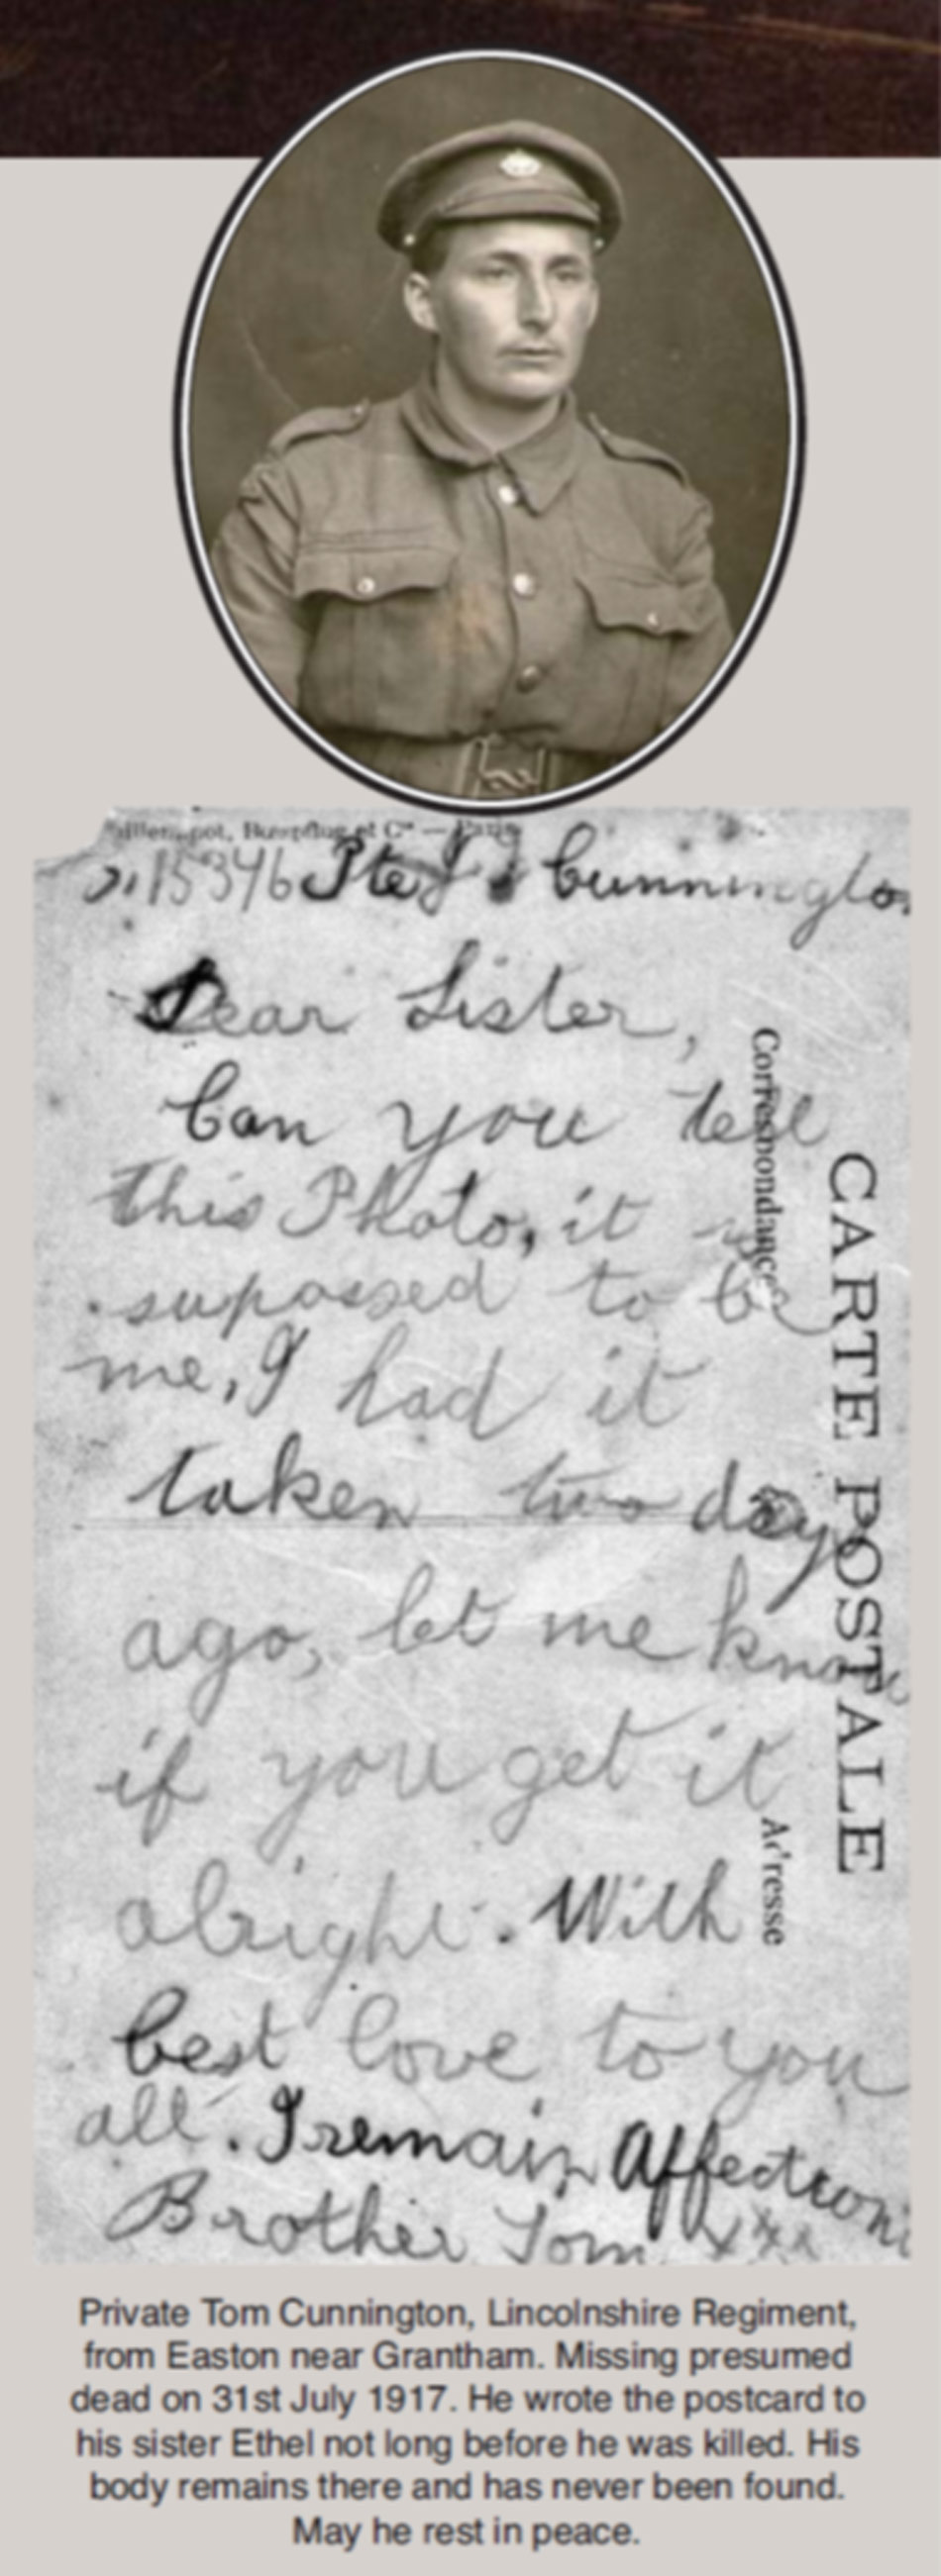 15346 Pte J Cunnington
Dear Sister,
Can you tell
this Photo, it is
suposed to be
me, I had it
taken two days
ago, let me know
if you get it
alright. With
best love to you
all. I remain Affection
Brother Tom xxx
Correspondance
CARTE POSTALE
Adresse
Private Tom Cunnington, Lincolnshire Regiment,
from Easton near Grantham. Missing presumed
dead on 31st July 1917. He wrote the postcard to
his sister Ethel not long before he was killed. His
body remains there and has never been found.
May he rest in peace.